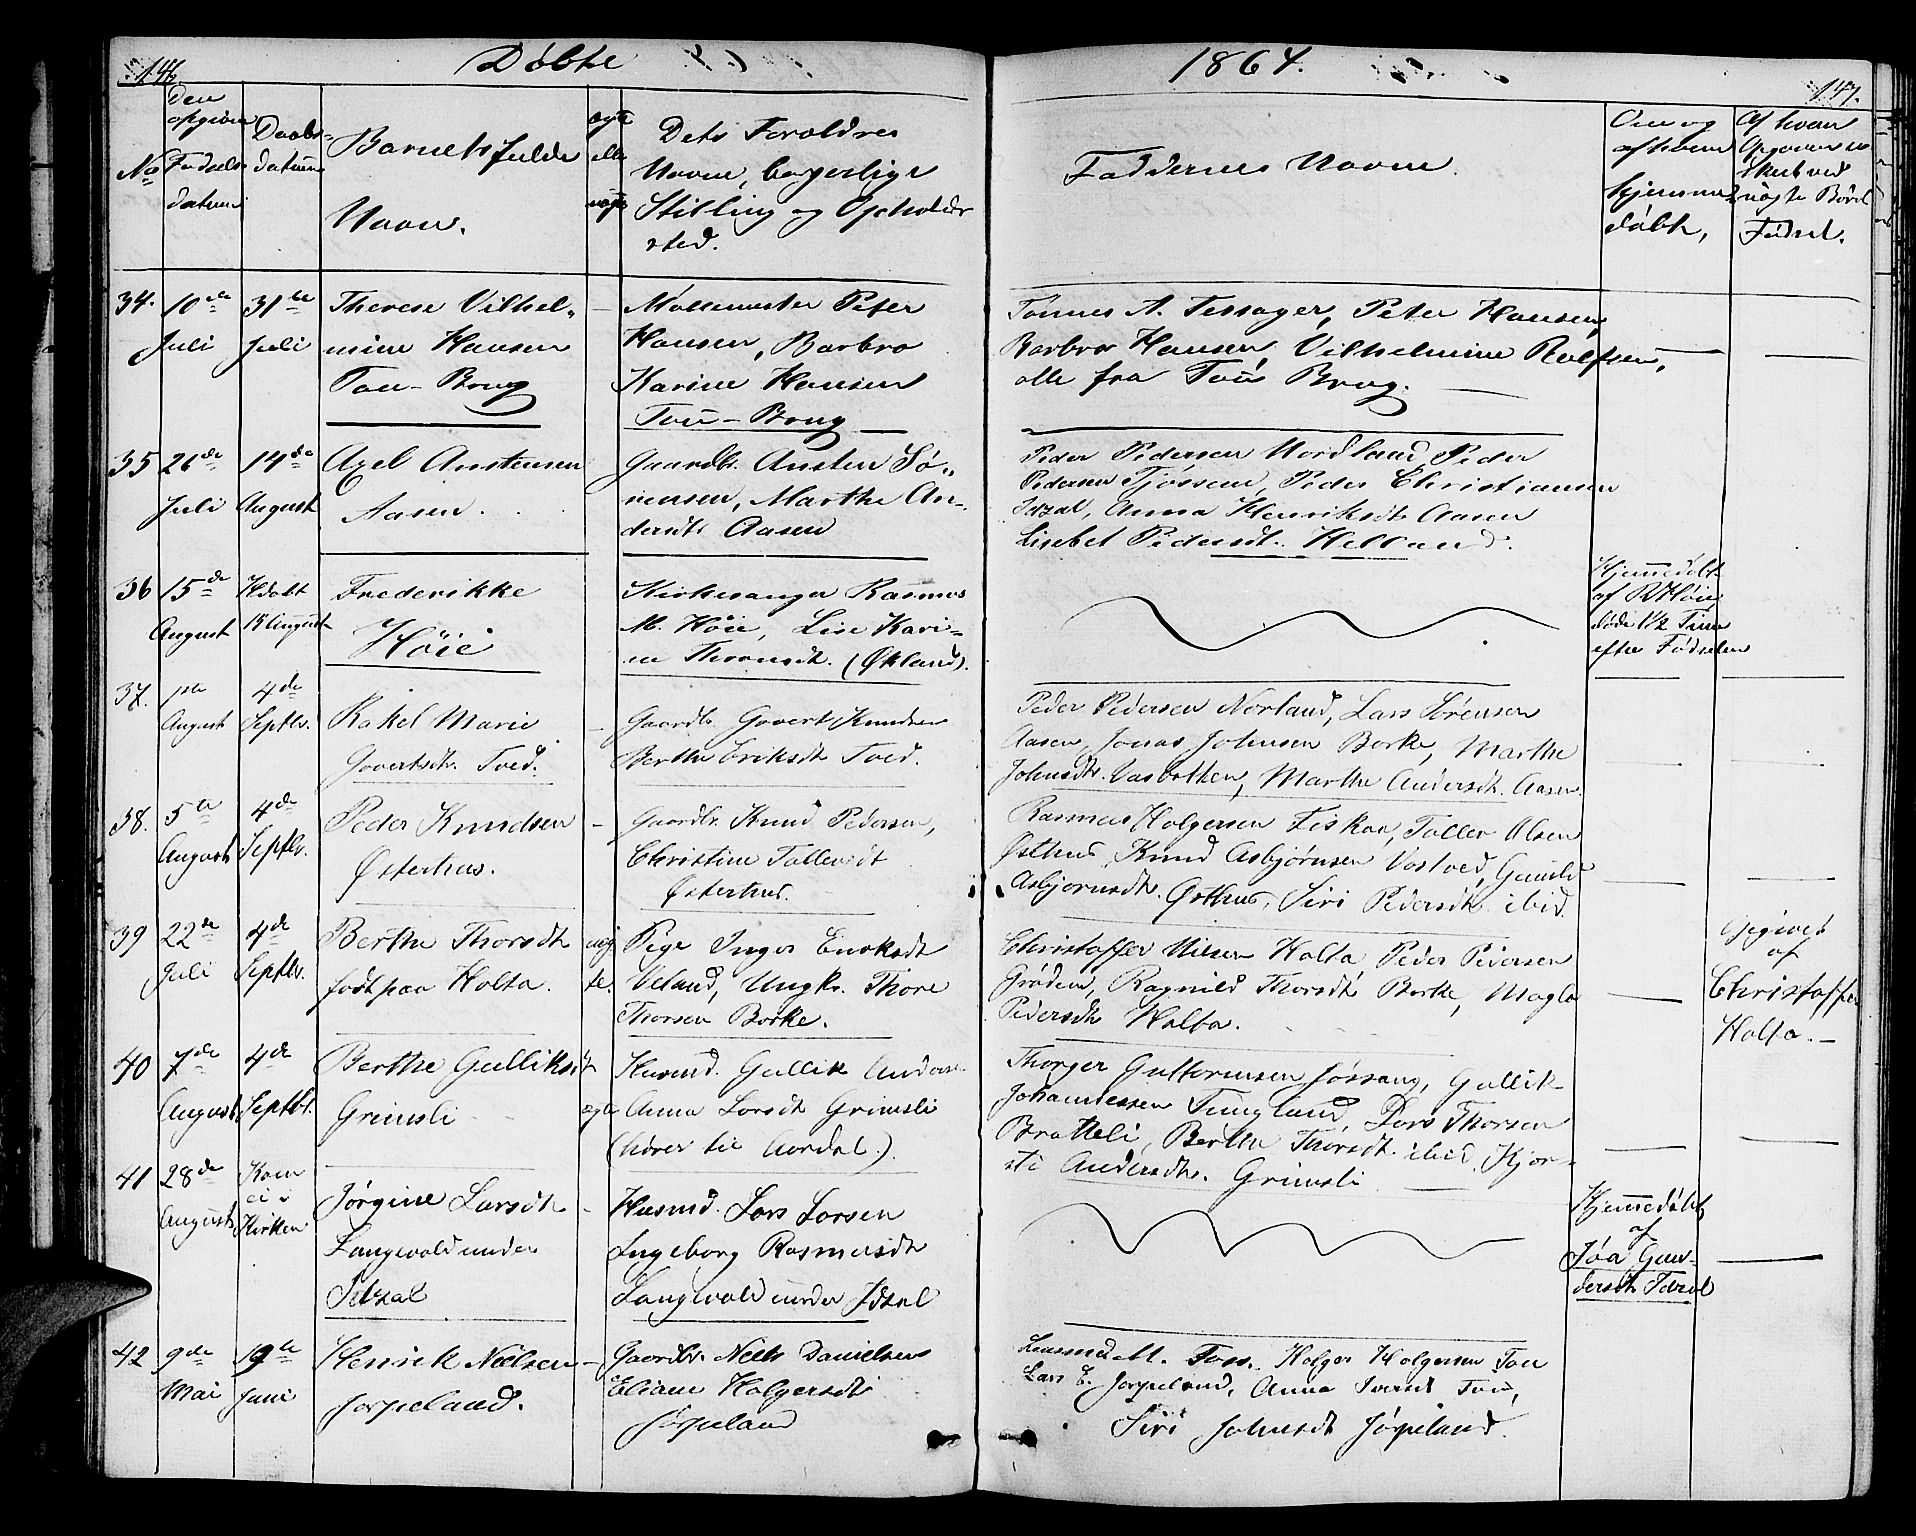 146.
Døbte
1864.
147.
No
den
opgivne
Fødsels
datum
Daabs-
datum
Barnets fulde
Navn.
ægte
elle
uægte
Dets Forældres
Navne, borgerlige
Stilling og Opholds
sted.
Faddernes Navne.
Om og
af hvem
hjemme
døbt,
Af hvem
Opgivelsen
skeet ved
uægte Børns
Fødsel.
34.
10de
Juli
31te
Juli
Therese Vilhel-
mine Hansen
Tou-Brug
—
Møllemester Peter
Hansen, Barbro
Karine Hansen
Tou-Brug
Tønnes A. Tessager, Peter Hansen,
Barbro Hansen, Vilhelmine Rolfsen,
alle fra Tous Brug.
35
26de
Juli
14de
August
Axel Austensen
Aasen.
Gaardbr. Austen Sø-
rensen, Marthe An-
dersdt. Aasen
Peder Pedersen Nordland Peder
Pedersen Tjøssem, Peder Christiansen
Idzal, Anna Henriksdt. Aasen
Lisebet Pedersdt. Helland.
36
15de
August
Hdøbt
15 August
Frederikke
Høie
Kirkesanger Rasmus
M. Høie, Lise Kari-
ne Thoresdt. (Økland).
Hjemmedøbt
af R Høie,
døde 1½ Time
efter Fødselen
37.
1ste
August
4de
Septbr.
Rakel Marie
Govertsdt. Tved.
—
Gaardbr. Govert Knudsen
Berthe Eriksdt Tved.
Peder Pedersen Norland, Lars Sørensen
Aasen, Jonas Johnsen Borke, Marthe
Johnsdtr. Vasbotten, Marthe Andersdt. Aasen.
38.
5te
August
4de
Septbr.
Peder Knudsen
Østerhus.
—
Gaardbr. Knud Pedersen,
Christine Tollevsdt
Østerhus.
Rasmus Holgersen Fiskaa, Toller Olsen
Østhus, Knud Asbjørnsen Vostved, Gunild
Asbjørnsdt. Østhus, Siri Pedersdt. ibid.
39
22de
Juli
4de
Septbr.
Berthe Thorsdt
født paa Holta.
uæg
te.
Pige Inger Eriksdt
Veland, Ungkr. Thore
Thorsen Borke.
Christoffer Nilsen Holta Peder Pedersen
Grødem, Ragnild Thorsdt Borke, Magla
Pedersdt Holta.
Opgivet
af
Christoffer
Holta. —
40
7de
August
4de
Septbr.
Berthe Gulliksdt
Grimsli
ægte
Husmd. Gullik Anders-
Anna Larsdt Grimsli
(hører til Aardal.).
Thorger Guttormsen Jøssang, Gullik
Johannessen Tungland, Lars Thorsen
Bratteli, Berthe Thorsdt. ibid, Kjer-
sti Andersdt. Grimsli
41
28de
August
Kom
ei i
Kirken
Jørgine Larsdt
Langevold under
Idzal
—
Husmd. Lars Larsen
Ingeborg Rasmusdt
Langevold under Idzal
Hjemmedøbt
af
Joa Gun-
dersdt Idzal
42
9de
Mai
19te
Juni
Henrik Nielsen
Jørpeland.
—
Gaardbr. Niels Danielsen
Eliane Holgersdt
Jørpeland
Lensmd M. Tou. Holger Holgersen Tou
Lars E. Jørpeland, Anna Iversdt Tou,
Siri Johnsdt Jørpeland.